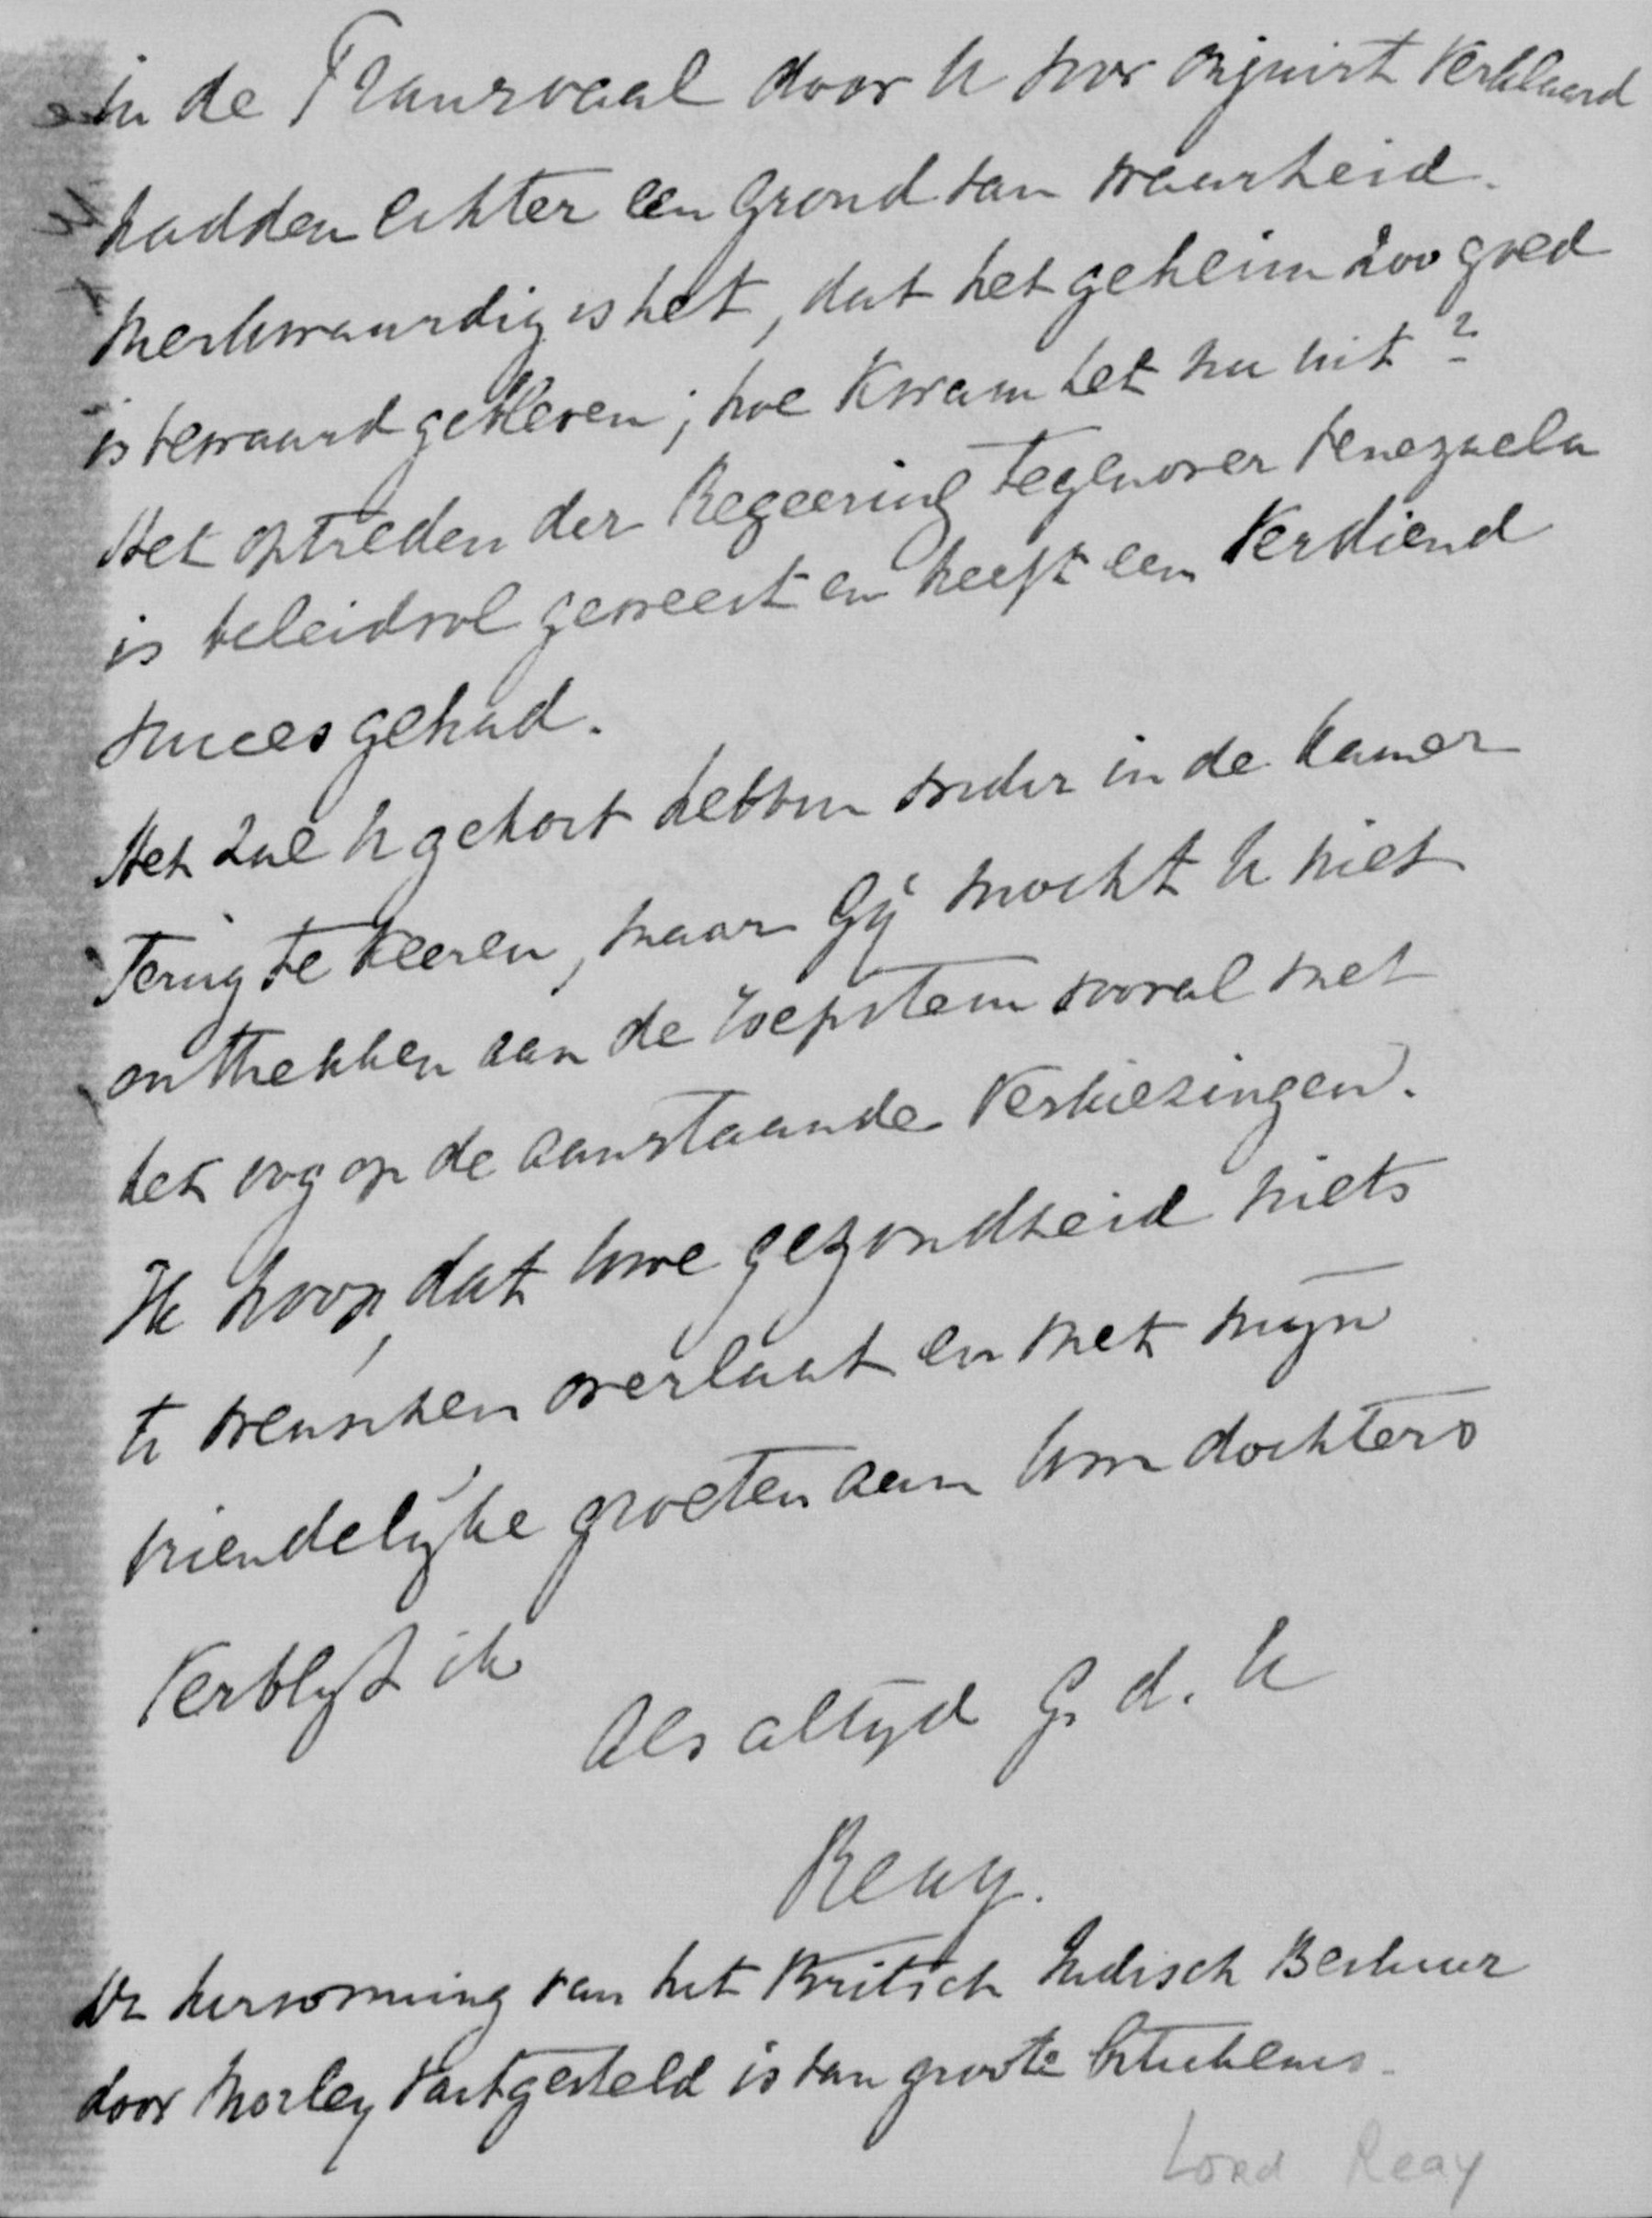 in de Transvaal door U voor onjuist verklaard
hadden echter een grond van waarheid.
Merkwaardig is het, dat het geheim zoo goed
is bewaard gebleven; hoe kwam het nu uit?
Het optreden der Regeering tegenover Venezuela
is beleidvol geweest en heeft een verdiend
succes gehad.
Het zal U gekost hebben weder in de Kamer
terug te keeren, maar Gij mocht U niet
onttrekken aan de roepstem vooral met
het oog op de aanstaande verkiezingen.
Ik hoop, dat Uwe gezondheid niets
te wenschen overlaat en met mijn
vriendelijke groeten aan Uwe dochters
Verblijf ik
Als altijd G. d. U
Reay.
De hervorming van het Britsch Indisch Bestuur
door Morley vastgesteld is van groote beteekenis.
Lord Reay